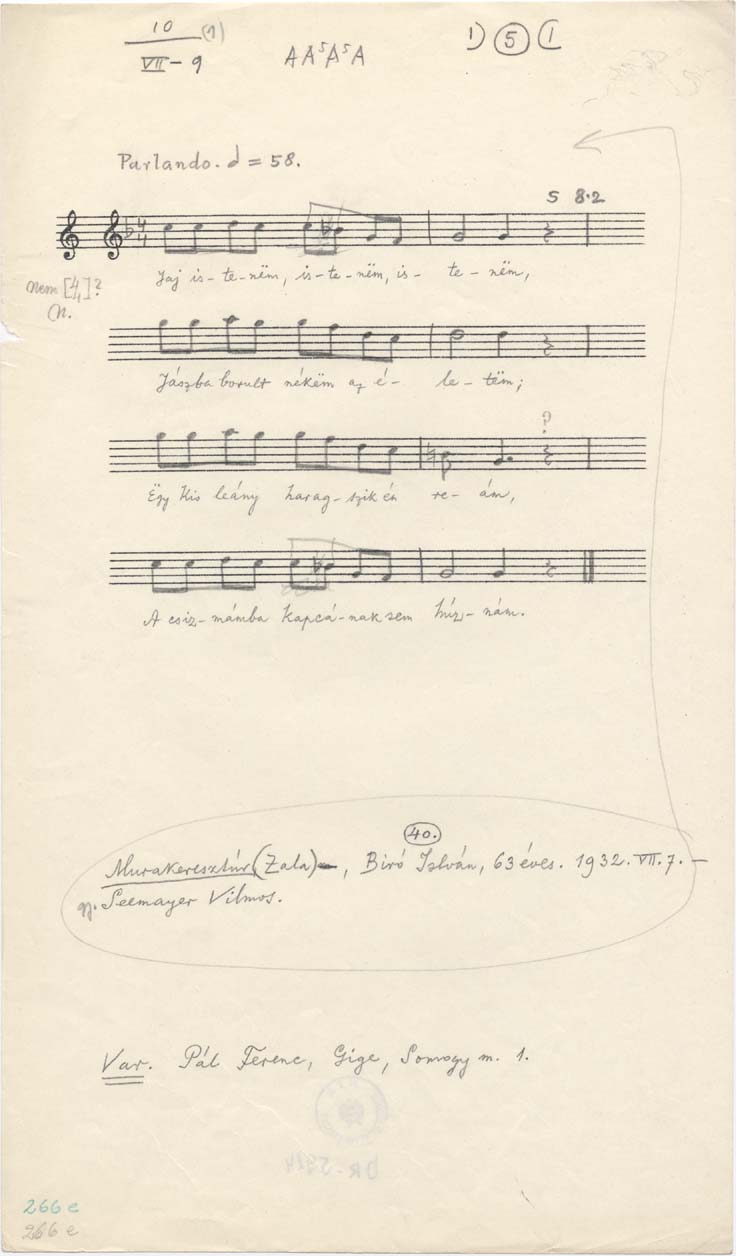 10 (1)
VII – 9
A A⁵ A⁵ A
1) 5 (1
Parlando. = 58.
5 8·2
4
4
Jaj is-te-nëm, is-te-nëm, is- te- nëm,
nem [4/4]?
Jászba borult nékëm az é- le-tëm;
?
Ëgy kis leány harag-szik én re- ám,
A csiz-mámba kapcá-nak sem húz-nám.
40.
Murakeresztúr (Zala), Biró István, 63 éves. 1932. VII. 7. –
gy. Seemayer Vilmos.
Var. Pál Ferenc, Gige, Somogy m. 1.
266 e
266 e